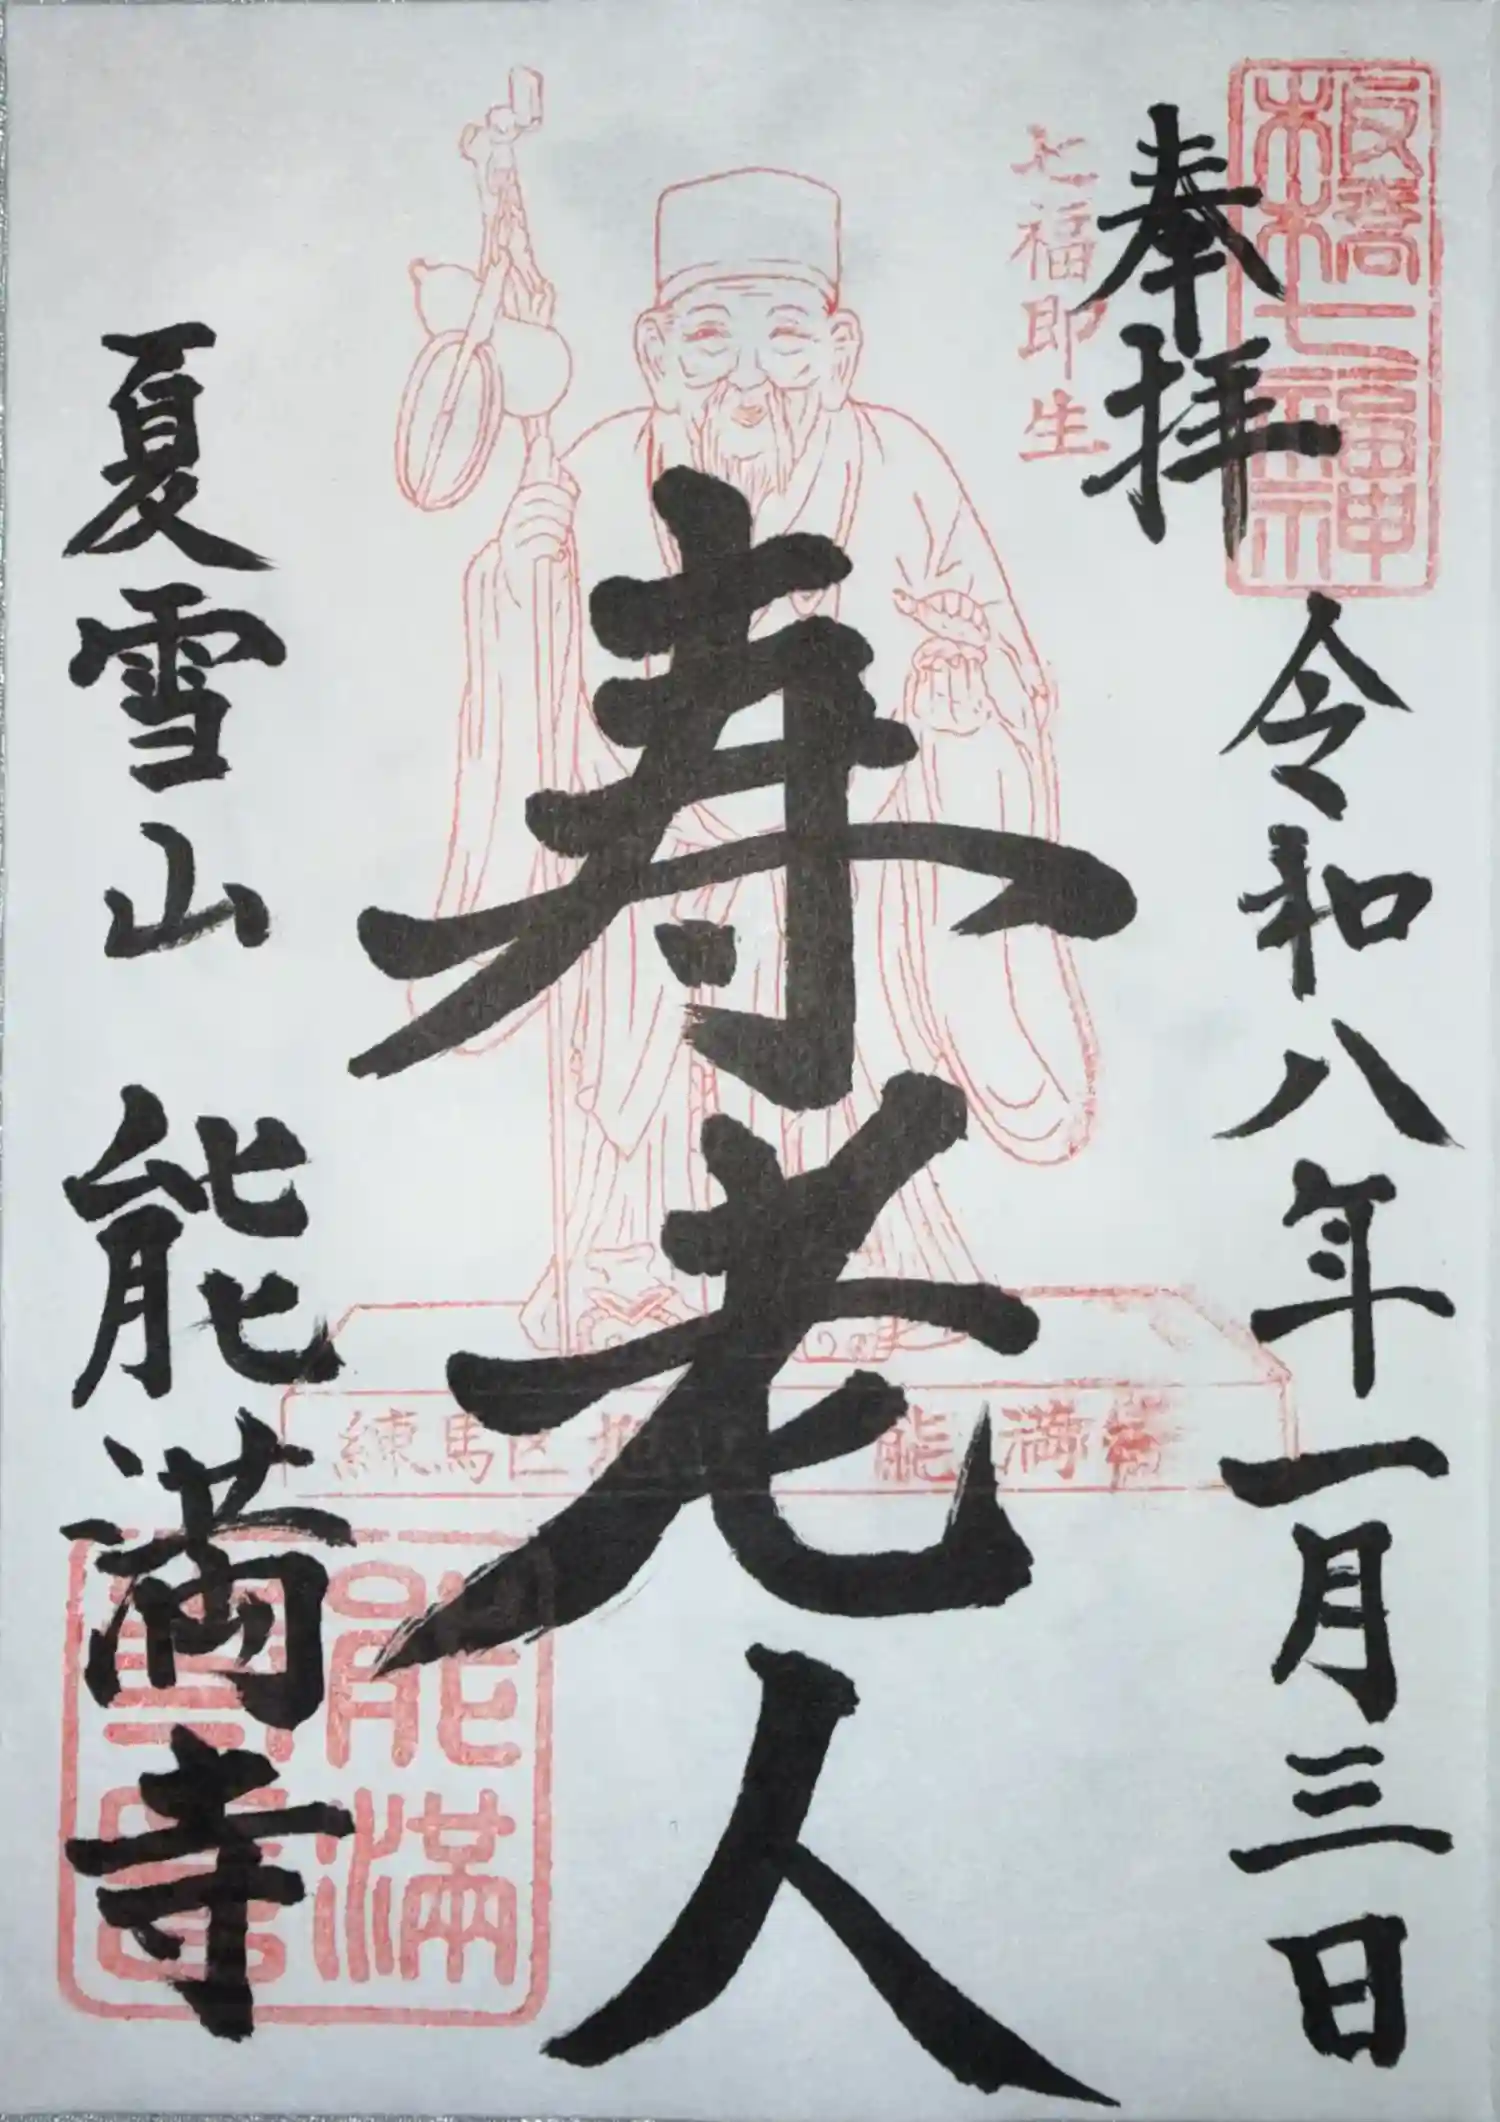 板橋七福神
奉拝
令和八年一月三日
七福即生
寿老人
練馬区旭
能満寺
夏雪山 能満寺
能満